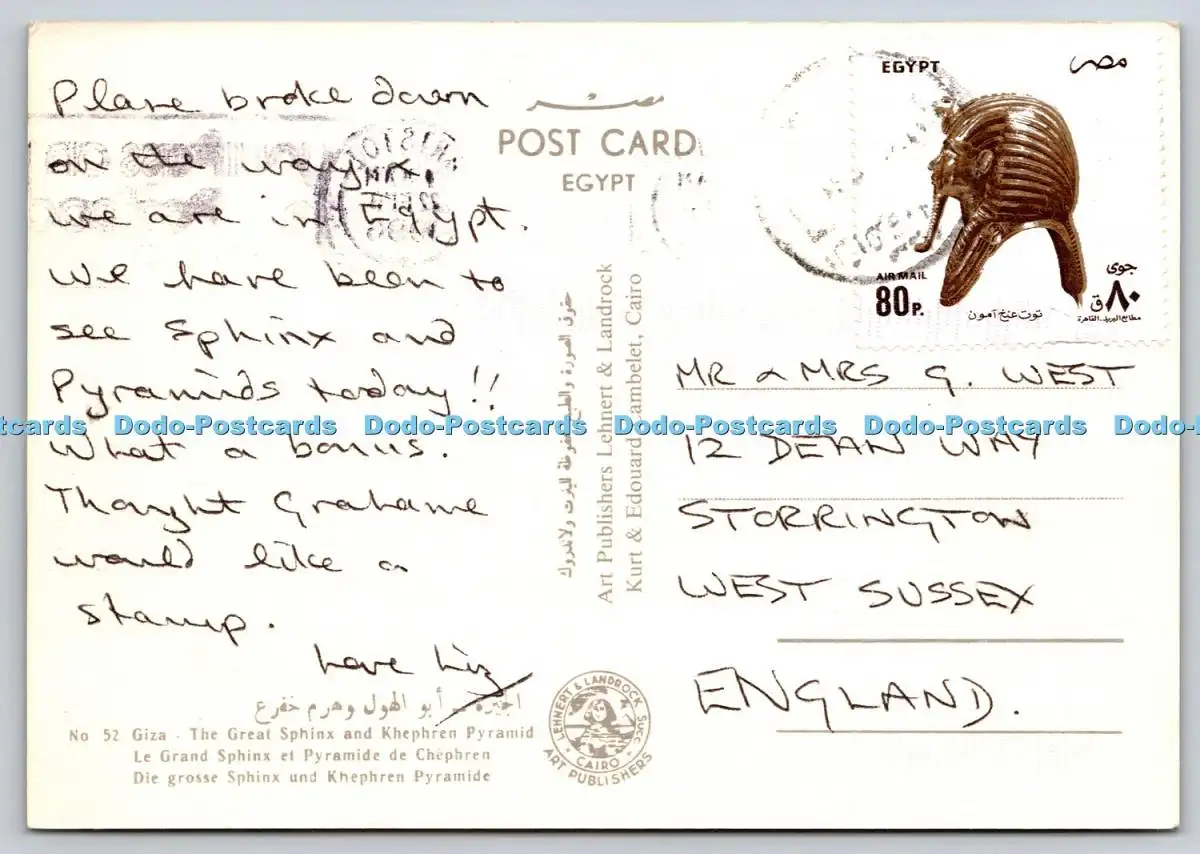 Plane broke down
on the way x
we are in Egypt.
We have been to
see Sphinx and
Pyramids today!!
What a bonus.
Thought Grahame
would like a
stamp.
Love Liz
الجيزة - أبو الهول وهرم خفرع
No 52 Giza - The Great Sphinx and Khephren Pyramid
Le Grand Sphinx et Pyramide de Chéphren
Die grosse Sphinx und Khephren Pyramide
مصر
POST CARD
EGYPT
Art Publishers Lehnert & Landrock
Kurt & Edouard Lambelet, Cairo
LEHNERT & LANDROCK SUCC.
CAIRO
ART PUBLISHERS
EGYPT
مصر
AIR MAIL
80 P.
توت عنخ آمون
جوى
٨٠ ق
مطابع البريد - القاهرة
MR & MRS G. WEST
12 DEAN WAY
STORRINGTON
WEST SUSSEX
ENGLAND.
Dodo-Postcards Dodo-Postcards Dodo-Postcards Dodo-Postcards